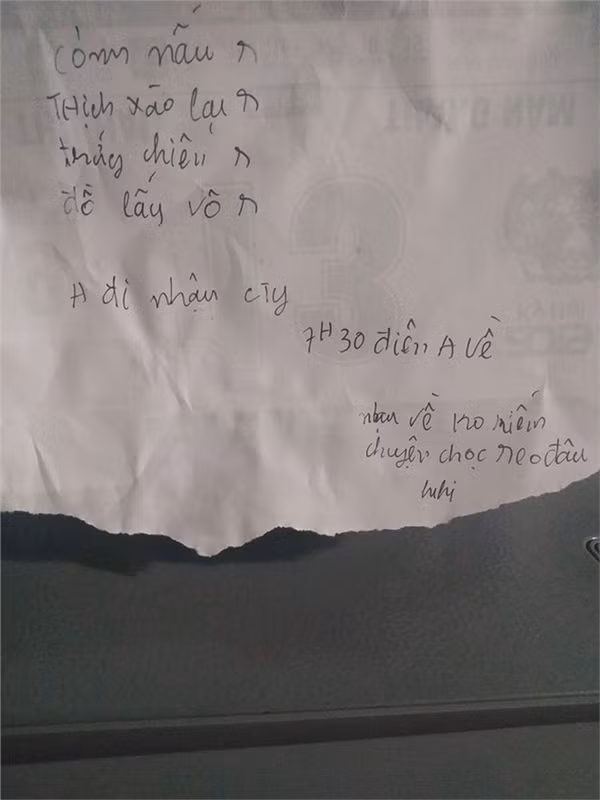 Cơm nấu r
THịch xào lại r
trứng chiên r
đồ lấy vô r
A đi nhậu cty
7H30 điện A về
nhậu về ko kiếm
chuyện chọc đâu
hihi